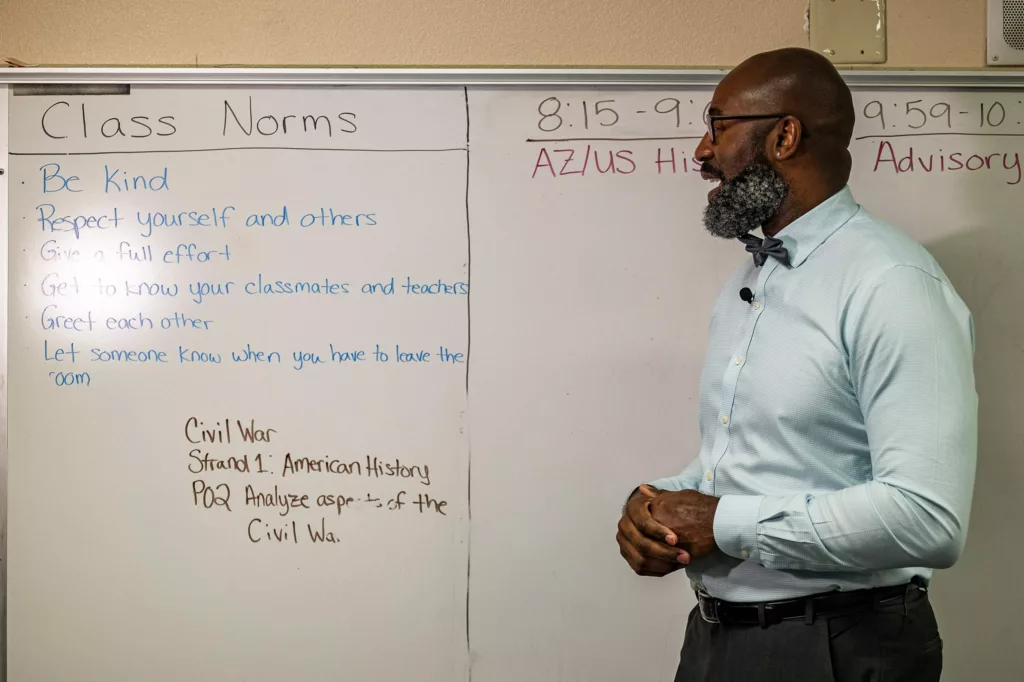 Class Norms
Be Kind
Respect yourself and others
Give a full effort
Get to know your classmates and teachers
Greet each other
Let someone know when you have to leave the
room
Civil War
Strand 1: American History
PO2 Analyze aspects of the
Civil Wa
8:15 - 9:
AZ/US His
9:59 - 10:
Advisory